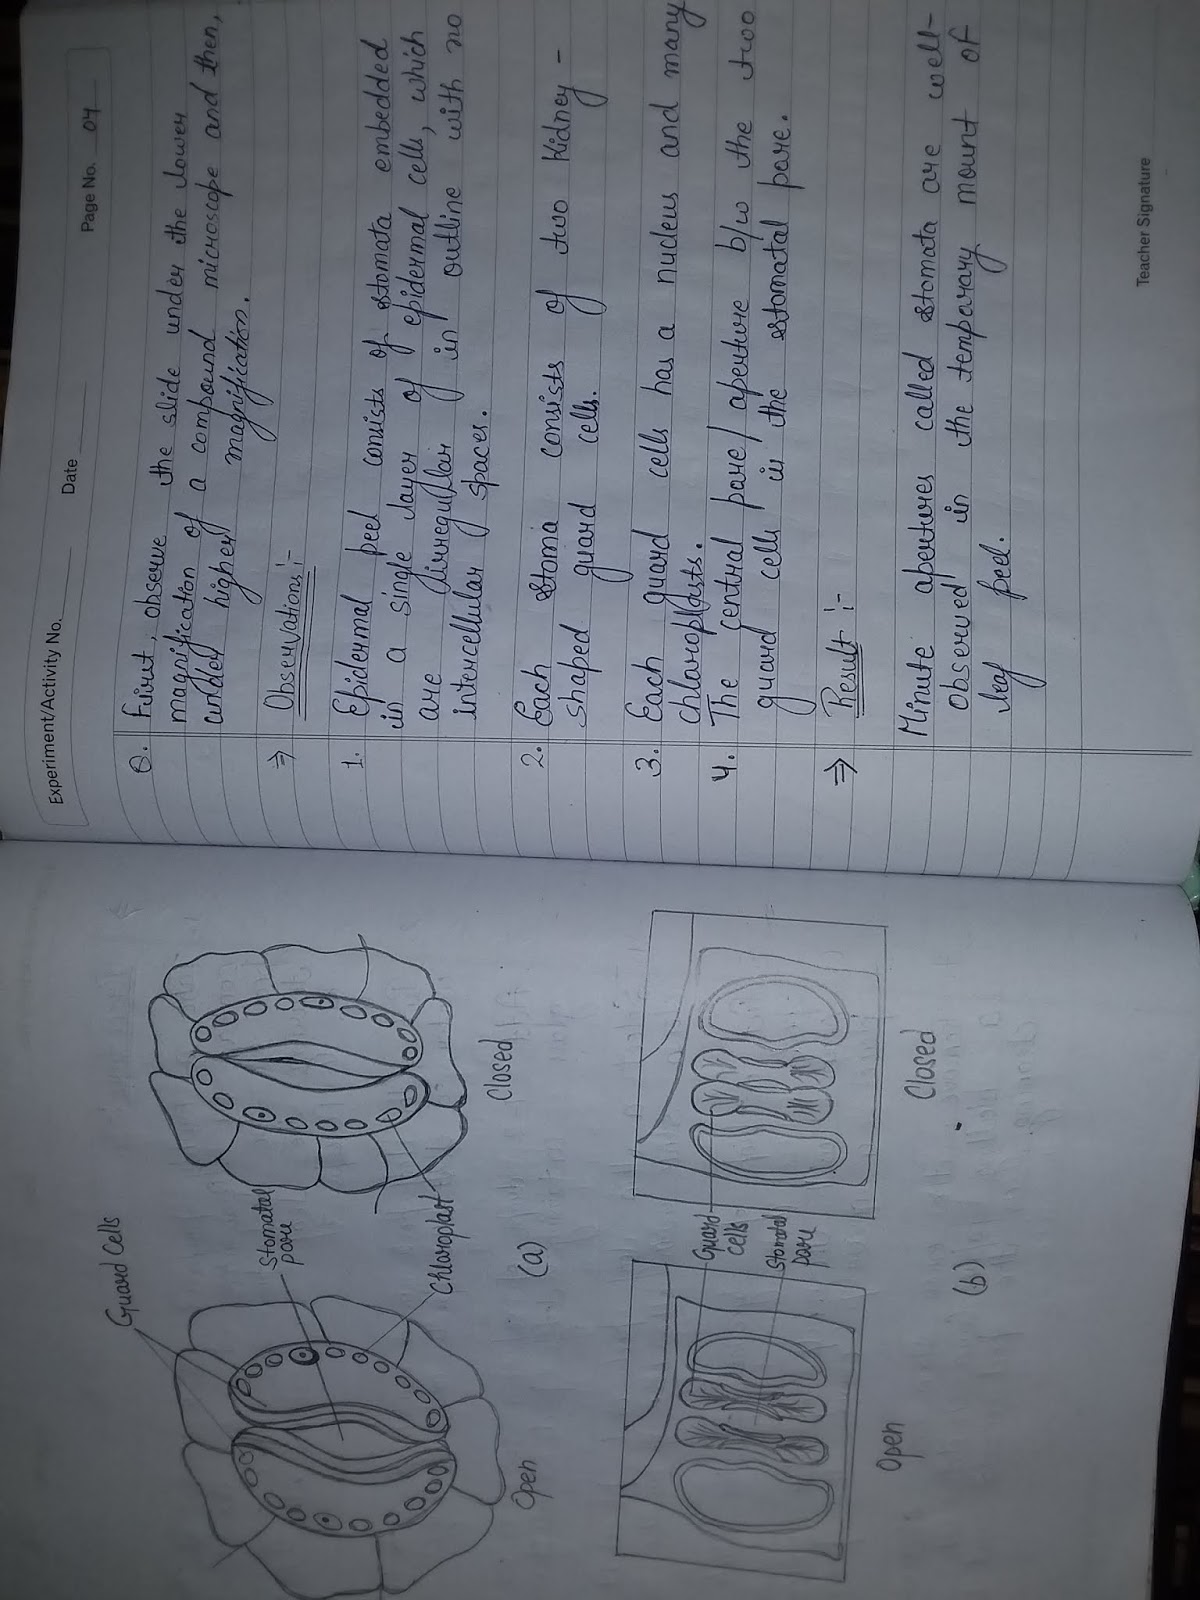 Guard Cells
Stomatal
pore
Chloroplast
Open
(a)
Closed
Guard
cells
Stomatal
pore
Open
(b)
Closed
Experiment/Activity No.
Date
Page No. 04
6. First, observe the slide under the lower
magnification of a compound microscope and then,
under higher magnification.
⇒ Observations:-
1. Epidermal peel consists of stomata embedded
in a single layer of epidermal cells, which
are irregular in outline with no
intercellular spaces.
2. Each stoma consists of two kidney-
shaped guard cells.
3. Each guard cells has a nucleus and many
chloroplasts.
4. The central pore/aperture b/w the two
guard cells is the stomatal pore.
⇒ Result :-
Minute apertures called stomata are well-
observed in the temparary mount of
leaf peel.
Teacher Signature